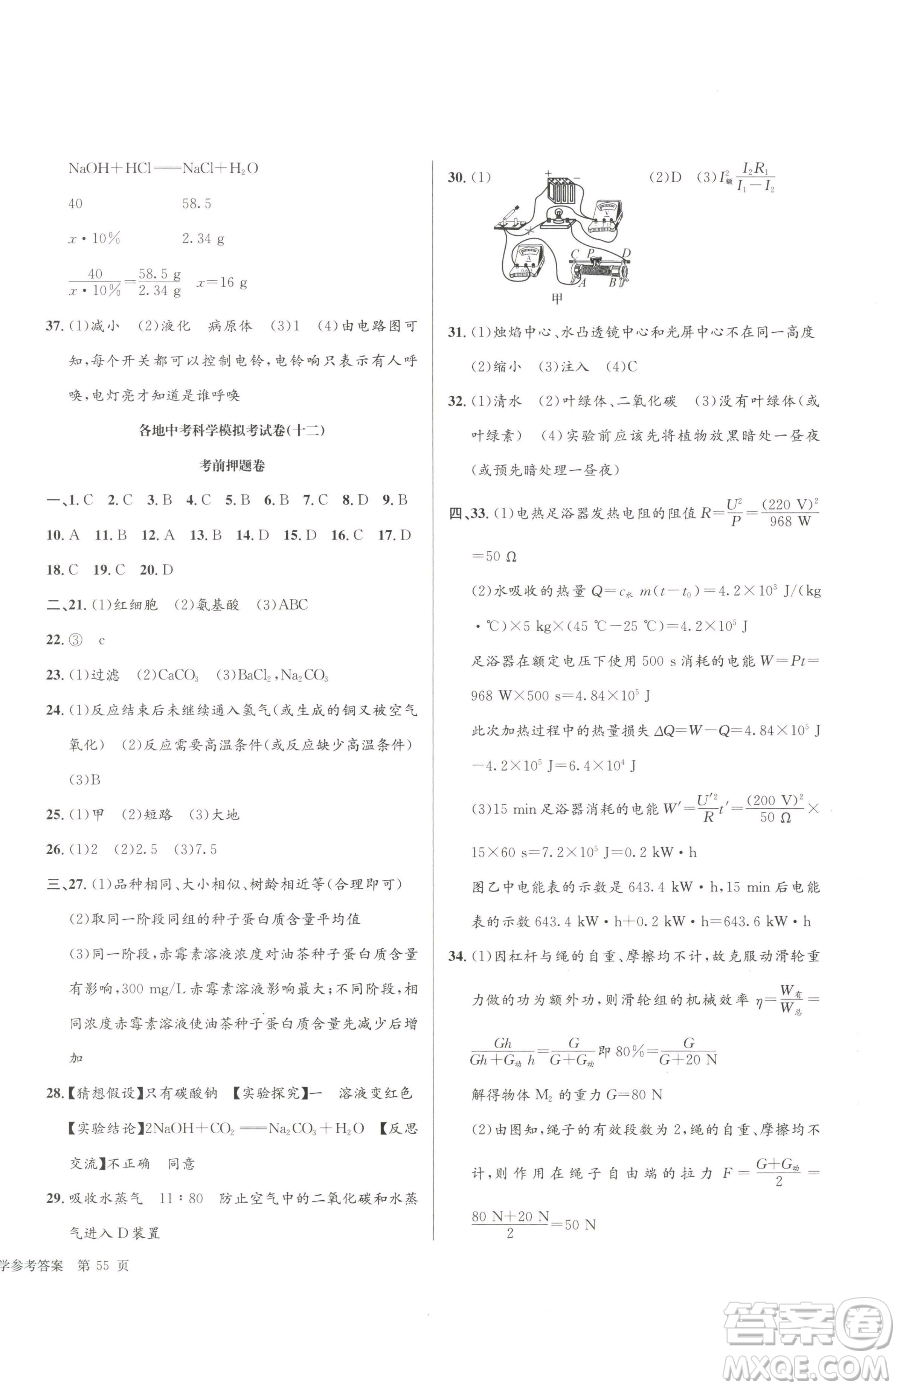 NaOH+HCl══NaCl+H₂O
40 58.5
x·10% 2.34 g
40/(x·10%)=58.5 g/2.34 g x=16 g
37. (1)减小 (2)液化 病原体 (3)1 (4)由电路图可
知,每个开关都可以控制电铃,电铃响只表示有人呼
唤,电灯亮才知道是谁呼唤
各地中考科学模拟考试卷(十二)
考前押题卷
一、1. C 2. C 3. B 4. C 5. B 6. B 7. C 8. D 9. B
10. A 11. B 12. A 13. B 14. D 15. D 16. D 17. D
18. C 19. C 20. D
二、21. (1)红细胞 (2)氨基酸 (3)ABC
22. ③ c
23. (1)过滤 (2)CaCO₃ (3)BaCl₂,Na₂CO₃
24. (1)反应结束后未继续通入氢气(或生成的铜又被空气
氧化) (2)反应需要高温条件(或反应缺少高温条件)
(3)B
25. (1)甲 (2)短路 (3)大地
26. (1)2 (2)2.5 (3)7.5
三、27. (1)品种相同、大小相似、树龄相等(合理即可)
(2)取同一阶段同组的种子蛋白质含量平均值
(3)同一阶段,赤霉素溶液浓度对油茶种子蛋白质含量
有影响,300 mg/L 赤霉素溶液影响最大;不同阶段,相
同浓度赤霉素溶液使油茶种子蛋白质含量先减少后增
加
28.【猜想假设】只有碳酸钠 【实验探究】一 溶液变红色
【实验结论】2NaOH+CO₂══Na₂CO₃+H₂O 【反思
交流】不正确 同意
29. 吸收水蒸气 11∶80 防止空气中的二氧化碳和水蒸
气进入 D 装置
学参考答案 第 55 页
30. (1) (2)D (3)I₂²额 I₂R₁/(I₁-I₂)
+ -
A
C P D
A B
甲
31. (1)烛焰中心、水凸透镜中心和光屏中心不在同一高度
(2)缩小 (3)注入 (4)C
32. (1)清水 (2)叶绿体、二氧化碳 (3)没有叶绿体(或
叶绿素) (4)实验前应该先将植物放黑暗处一昼夜
(或预先暗处理一昼夜)
四、33. (1)电热足浴器发热电阻的阻值 R=U²/P=(220 V)²/968 W
=50 Ω
(2)水吸收的热量 Q=c水 m(t-t₀)=4.2×10³ J/(kg
·℃)×5 kg×(45-25 ℃)=4.2×10⁵ J
足浴器在额定电压下使用 500 s 消耗的电能 W=Pt=
968 W×500 s=4.84×10⁵ J
此次加热过程中的热量损失 ΔQ=W-Q=4.84×10⁵ J
-4.2×10⁵ J=6.4×10⁴ J
(3)15 min 足浴器消耗的电能 W′=U′²/R t′=(200 V)²/50 Ω×
15×60 s=7.2×10⁵ J=0.2 kW·h
图乙中电能表的示数是 643.4 kW·h,15 min 后电能
表的示数 643.4 kW·h+0.2 kW·h=643.6 kW·h
34. (1)因杠杆与绳的自重、摩擦均不计,故克服动滑轮重
力做的功为额外功,则滑轮组的机械效率 η=W有/W总=
Gh/(Gh+G动h)=G/(G+G动)即 80%=G/(G+20 N)
解得物体 M₂ 的重力 G=80 N
(2)由图知,绳子的有效段数为 2,绳的自重、摩擦均不
计,则作用在绳子自由端的拉力 F=(G+G动)/2=
(80 N+20 N)/2=50 N
答案圈
MXQE.COM